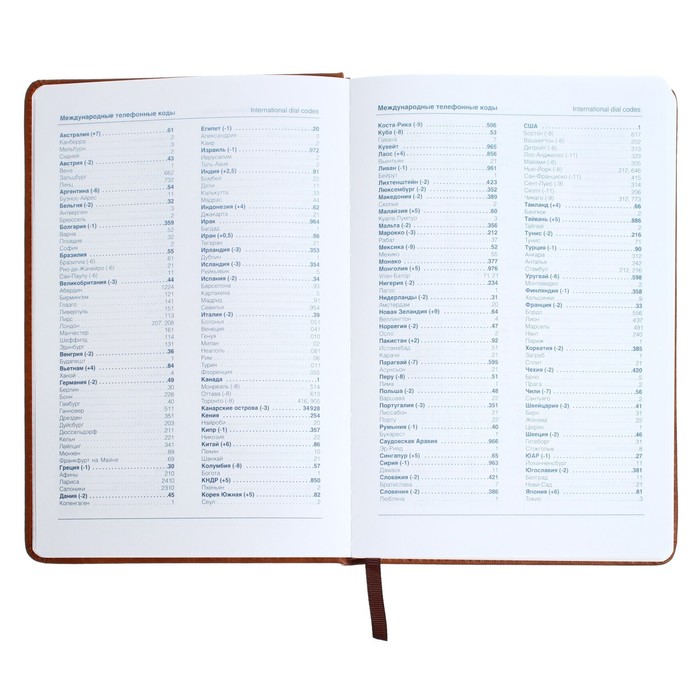 Международные телефонные коды International dial codes
Австралия (+7) 61
Канберра 2
Мельбурн 3
Сидней 2
Австрия (-2) 43
Вена 662
Зальцбург 662
Линц 732
Аргентина (-6) 54
Буэнос-Айрес 11
Бельгия (-2) 32
Антверпен 3
Брюссель 2
Болгария (-1) 359
Варна 52
Пловдив 32
София 2
Бразилия 55
Бразилиа (-6) 61
Рио-де-Жанейро (-6) 21
Сан-Паулу (-6) 11
Великобритания (-3) 44
Абердин 1224
Бирмингем 121
Глазго 141
Ливерпуль 151
Лидс 113
Лондон 207, 208
Манчестер 161
Шеффилд 114
Эдинбург 131
Венгрия (-2) 36
Будапешт 1
Вьетнам (+4) 84
Ханой 4
Германия (-2) 49
Берлин 30
Бонн 228
Гамбург 40
Ганновер 511
Дрезден 351
Дуйсбург 203
Дюссельдорф 211
Кельн 221
Лейпциг 341
Мюнхен 89
Франкфурт на Майне 69
Греция (-1) 30
Афины 210
Лариса 2410
Салоники 2310
Дания (-2) 45
Копенгаген 1
Египет (-1) 20
Александрия 3
Каир 2
Израиль (-1) 972
Иерусалим 2
Тель-Авив 3
Индия (+2,5) 91
Бомбей 22
Дели 11
Калькутта 33
Мадрас 44
Индонезия (+4) 62
Джакарта 21
Ирак 964
Багдад 1
Иран (+0,5) 98
Тегеран 21
Ирландия (-3) 353
Дублин 1
Исландия (-3) 354
Рейкьявик 5
Испания (-2) 34
Барселона 93
Картахена 5
Мадрид 91
Севилья 954
Италия (-2) 39
Болонья 051
Венеция 041
Генуя 010
Милан 02
Неаполь 081
Рим 06
Турин 011
Флоренция 055
Канада 1
Монреаль (-8) 514
Оттава (-8) 613
Торонто (-8) 416, 905
Канарские острова (-3) 34928
Кения 254
Найроби 20
Кипр (-1) 357
Никозия 22
Китай (+5) 86
Пекин 10
Шанхай 21
Колумбия (-8) 57
Богота 1
КНДР (+5) 850
Пхеньян 2
Корея Южная (+5) 82
Сеул 2
Международные телефонные коды International dial codes
Коста-Рика (-9) 506
Куба (-8) 53
Гавана 7
Кувейт 965
Лаос (+4) 856
Вьентьян 21
Ливан (-1) 961
Бейрут 1
Лихтенштейн (-2) 423
Люксембург (-2) 352
Македония (-2) 389
Скопье 2
Малайзия (+5) 60
Куала-Лумпур 3
Мальта (-2) 356
Марокко (-3) 212
Рабат 37
Мексика (-9) 52
Мехико 55
Монако 377
Монголия (+5) 976
Улан-Батор 11, 21
Нигерия (-2) 234
Лагос 1
Нидерланды (-2) 31
Амстердам 20
Новая Зеландия (+9) 64
Веллингтон 4
Норвегия (-2) 47
Осло 2
Пакистан (+2) 92
Исламабад 51
Карачи 21
Парагвай (-7) 595
Асунсьон 21
Перу (-8) 51
Лима 1
Польша (-2) 48
Варшава 22
Португалия (-3) 351
Лиссабон 21
Порту 22
Румыния (-1) 40
Бухарест 1
Саудовская Аравия 966
Эр-Рияд 1
Сингапур (+5) 65
Сирия (-1) 963
Дамаск 11
Словакия (-2) 421
Братислава 7
Словения (-2) 386
Любляна 1
США 1
Бостон (-8) 617
Вашингтон (-8) 202
Детройт (-8) 313
Лос-Анджелес (-11) 323
Майами (-8) 305
Нью-Йорк (-8) 212, 646
Сан-Франциско (-11) 415
Сент-Луис (-9) 314
Сиэтл (-11) 206
Чикаго (-9) 312, 773
Таиланд (+4) 66
Бангкок 2
Тайвань (+5) 886
Тайпей 2
Тунис (-2) 216
Тунис 71
Турция (-1) 90
Анкара 312
Анталья 242
Стамбул 212, 216
Уругвай (-6) 598
Монтевидео 2
Финляндия (-1) 358
Хельсинки 9
Франция (-2) 33
Бордо 556
Лион 437
Марсель 491
Нант 240
Париж 1
Хорватия (-2) 385
Загреб 1
Сплит 21
Чехия (-2) 420
Брно 5
Прага 2
Чили (-7) 56
Сантьяго 2
Швейцария (-2) 41
Берн 31
Женева 22
Цюрих 1
Швеция (-2) 46
Гетеборг 31
Стокгольм 8
ЮАР (-1) 27
Йоханнесбург 11
Югославия (-2) 381
Белград 11
Нови-Сад 21
Япония (+6) 81
Токио 3